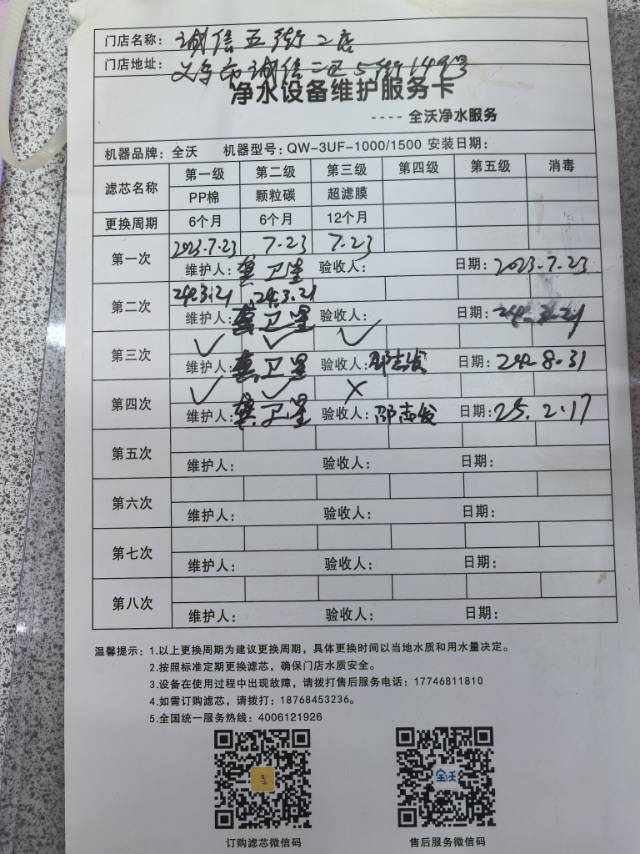 门店名称：诚信五街二店
门店地址：义乌市诚信二区5街149号
净水设备维护服务卡
---- 全沃净水服务
机器品牌：全沃 机器型号：QW-3UF-1000/1500 安装日期：
滤芯名称 第一级 第二级 第三级 第四级 第五级 消毒
PP棉 颗粒碳 超滤膜
更换周期 6个月 6个月 12个月
第一次 2023.7.23 7.23 7.23
维护人：龚卫星 验收人： 日期：2023.7.23
第二次 24.3.21 24.3.21
维护人：龚卫星 验收人： 日期：24.3.21
第三次 ✓ ✓ ✓
维护人：龚卫星 验收人：邵志俊 日期：24.8.31
第四次 ✓ ✓ ×
维护人：龚卫星 验收人：邵志俊 日期：25.2.17
第五次
维护人： 验收人： 日期：
第六次
维护人： 验收人： 日期：
第七次
维护人： 验收人： 日期：
第八次
维护人： 验收人： 日期：
温馨提示：1.以上更换周期为建议更换周期，具体更换时间以当地水质和用水量决定。
2.按照标准定期更换滤芯，确保门店水质安全。
3.设备在使用过程中出现故障，请拨打售后服务电话：17746811810
4.如需订购滤芯，请拨打：18768453236。
5.全国统一服务热线：4006121926
全沃
订购滤芯微信码 售后服务微信码